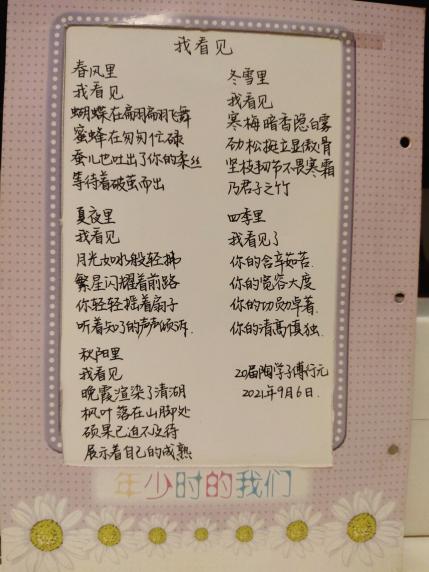 我看见
春风里
我看见
蝴蝶在翩翩飞舞
蜜蜂在匆匆忙碌
蚕儿也吐出了你的柔丝
等待着破茧而出
夏夜里
我看见
月光如水般轻拂
繁星闪耀着前路
你轻轻摇着扇子
听着知了的声声倾诉.
秋阳里
我看见
晚霞渲染了清湖
枫叶落在山脚处
硕果已迫不及待
展示着自己的成熟
冬雪里
我看见
寒梅暗香隐白雾
劲松挺立显傲骨
坚枝韧节不畏寒霜
乃君子之竹
四季里
我看见了
你的含辛茹苦.
你的宽容大度
你的功勋卓著.
你的清高慎独.
20届陶学子傅行元
2021年9月6日.
年少时的我们